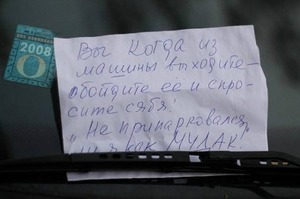 2008
Вы когда из
машины выходите -
обойдите её и спро-
сите сябя:
"Не припарковался
ли я как МУДАК?